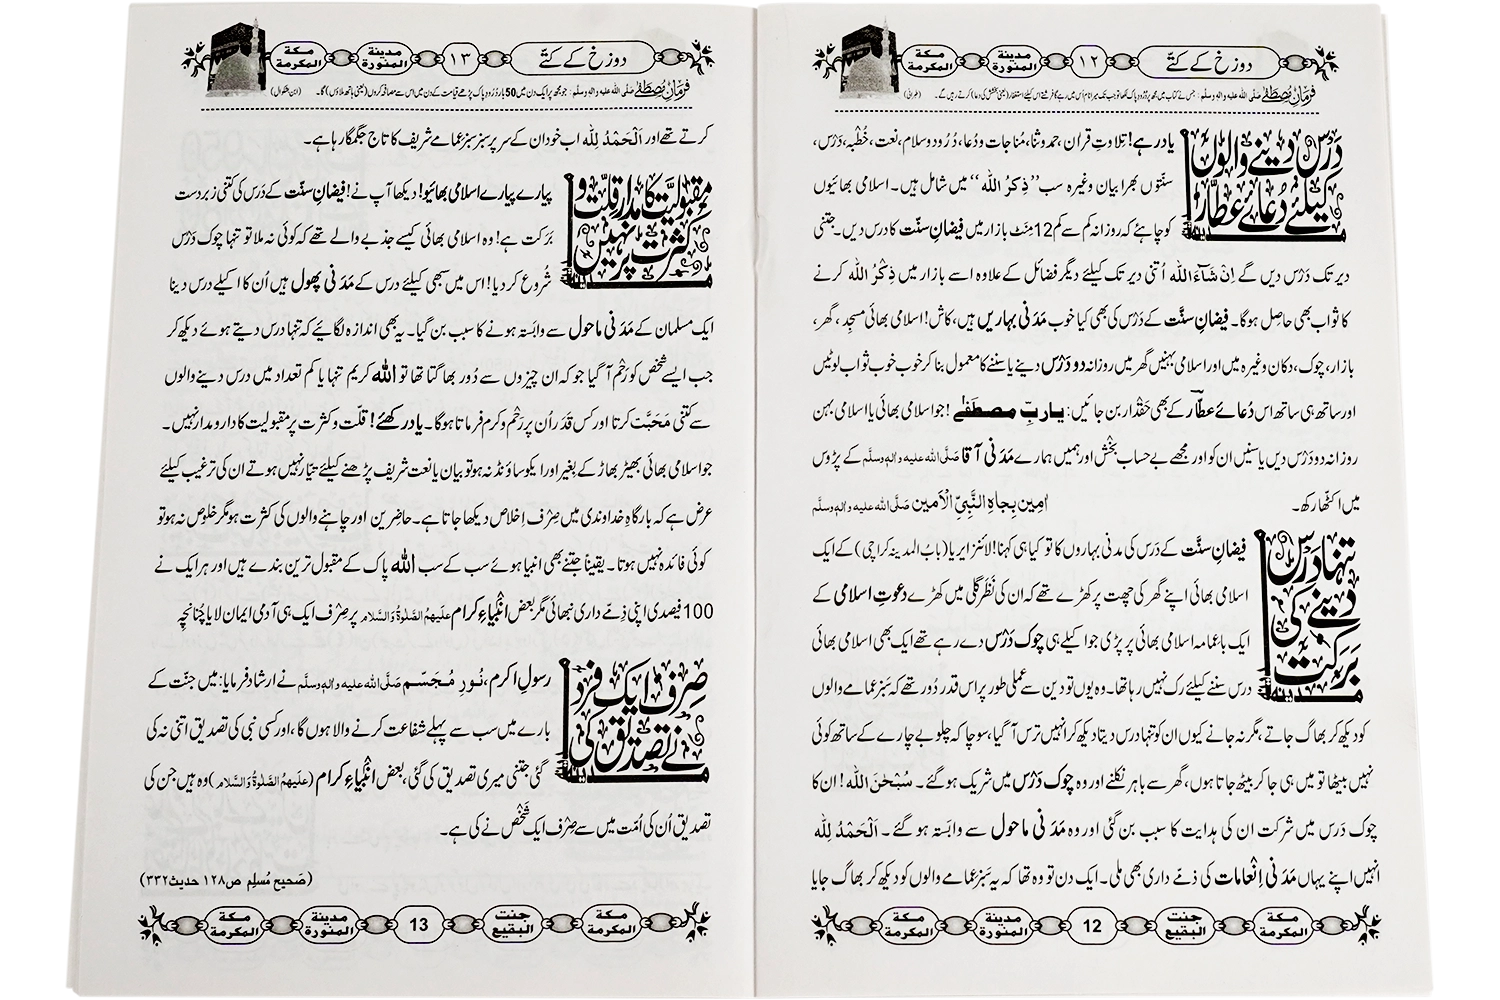 دوزخ کے کتّے
۱۲
مدینة المنورة
مکة المکرمة
فرمانِ مُصطَفٰے صَلَّى الله عليه واله وسلَّم : جس نے کتاب میں مجھ پر دُرُودِ پاک لکھا تو جب تک میرا نام اُس میں رہے گا فرشتے اس کیلئے استغفار (یعنی بخشش کی دعا) کرتے رہیں گے۔ (طبرانی)
دَرْس دینے والوں کیلئے دُعائے عطّار
یاد رہے! تِلاوتِ قراٰن، حمد وثنا، مُناجات و دُعا، دُرُود و سلام، نعت، خُطبہ، دَرْس،
سنّتوں بھرا بیان وغیرہ سب ’’ذِکرُ اللہ‘‘ میں شامل ہیں۔ اسلامی بھائیوں
کو چاہئے کہ روزانہ کم سے کم 12 مِنَٹ بازار میں فیضانِ سنّت کا درس دیں۔ جتنی
دیر تک دَرْس دیں گے اِنْ شَآءَ اللہ اُتنی دیر تک کیلئے دیگر فضائل کے علاوہ اسے بازار میں ذِکْرُ اللہ کرنے
کا ثواب بھی حاصِل ہوگا۔ فیضانِ سنّت کے دَرْس کی بھی کیا خوب مَدَنی بہاریں ہیں، کاش! اسلامی بھائی مسجِد، گھر،
بازار، چوک، دکان وغیرہ میں اور اسلامی بہنیں گھر میں روزانہ دو دَرْس دینے یا سننے کا معمول بنا کر خوب خوب ثواب لوٹیں
اور ساتھ ہی ساتھ اس دُعائے عطّار کے بھی حَقدار بن جائیں: یا ربِّ مصطَفٰے! جو اسلامی بھائی یا اسلامی بہن
روزانہ دو دَرْس دیں یا سنیں ان کو اور مجھے بے حساب بخش اور ہمیں ہمارے مَدَنی آقا صَلَّى الله عليه واله وسلَّم کے پڑوس
میں اکٹّھا رکھ۔ اٰمِین بِجاہِ النَّبِیِّ الْاَمین صَلَّى الله عليه واله وسلَّم
تنہا درس دینے کی بَرَکت
فیضانِ سنَّت کے دَرْس کی مدنی بہاروں کا تو کیا ہی کہنا! لائنز ایریا (بابُ المدینہ کراچی) کے ایک
اسلامی بھائی اپنے گھر کی چھت پر کھڑے تھے کہ ان کی نَظَر گلی میں کھڑے دعوتِ اسلامی کے
ایک باعمامہ اسلامی بھائی پر پڑی جو اکیلے ہی چوک دَرْس دے رہے تھے ایک بھی اسلامی بھائی
درس سننے کیلئے رک نہیں رہا تھا۔ وہ یوں تو دین سے عملی طور پر اس قدر دُور تھے کہ سَبْز عمامے والوں
کو دیکھ کر بھاگ جاتے، مگر نہ جانے کیوں ان کو تنہا درس دیتا دیکھ کر انہیں ترس آ گیا، سوچا کہ چلو بے چارے کے ساتھ کوئی
نہیں بیٹھا تو میں ہی جا کر بیٹھ جاتا ہوں، گھر سے باہر نکلے اور وہ چوک دَرْس میں شریک ہوگئے۔ سُبْحٰنَ اللہ! ان کا
چوک دَرس میں شرکت ان کی ہدایت کا سبب بن گئی اور وہ مَدَنی ماحول سے وابَستہ ہو گئے۔ اَلْحَمْدُ لِلّٰہ
انہیں اپنے یہاں مَدَنی اِنعامات کی ذمّے داری بھی ملی۔ ایک دن تو وہ تھا کہ یہ سَبْز عمامے والوں کو دیکھ کر بھاگ جایا
مکة المکرمة
جنت البقیع
12
مدینة المنورة
مکة المکرمة
دوزخ کے کتّے
۱۳
مدینة المنورة
مکة المکرمة
فرمانِ مُصطَفٰے صَلَّى الله عليه واله وسلَّم : جو مجھ پر ایک دن میں 50 بار دُرُودِ پاک پڑھے قیامت کے دن میں اس سے مصافحہ کروں (یعنی ہاتھ ملاؤں) گا۔ (ابن بشکوال)
کرتے تھے اور اَلْحَمْدُ لِلّٰہ اب خود ان کے سر پر سبز سبز عمامے شریف کا تاج جگمگا رہا ہے۔
مقبولیّت کا مدار قلّت و کثرت پر نہیں
پیارے پیارے اسلامی بھائیو! دیکھا آپ نے! فیضانِ سنّت کے دَرس کی کتنی زبردست
بَرَکت ہے! وہ اسلامی بھائی کیسے جذبے والے تھے کہ کوئی نہ ملا تو تنہا چوک دَرْس
شُروع کر دیا! اس میں سبھی کیلئے درس کے مَدَنی پھول ہیں اُن کا اکیلے درس دینا
ایک مسلمان کے مَدَنی ماحول سے وابَستہ ہونے کا سبب بن گیا۔ یہ بھی اندازہ لگائیے کہ تنہا درس دیتے ہوئے دیکھ کر
جب ایسے شخص کو رَحْم آ گیا جو کہ ان چیزوں سے دُور بھاگتا تھا تو اللہ کریم تنہا یا کم تعداد میں درس دینے والوں
سے کتنی مَحَبَّت کرتا اور کس قَدَر اُن پر رَحْم و کرم فرماتا ہوگا۔ یاد رکھئے! قلّت و کثرت پر مقبولیت کا دارو مدار نہیں۔
جو اسلامی بھائی بھیڑ بھاڑ کے بِغیر اور ایکو ساؤنڈ نہ ہو تو بیان یا نعت شریف پڑھنے کیلئے تیّار نہیں ہوتے ان کی ترغیب کیلئے
عرض ہے کہ بارگاہِ خداوندی میں صِرْف اِخلاص دیکھا جاتا ہے۔ حاضِرین اور چاہنے والوں کی کثرت ہو مگر خلوص نہ ہو تو
کوئی فائدہ نہیں ہوتا۔ یقیناً جتنے بھی انبیا ہوئے سب کے سب اللہ پاک کے مقبول ترین بندے ہیں اور ہر ایک نے
100 فیصدی اپنی ذِمّے داری نبھائی مگر بعض انْبِیاءِ کرام علَیہِمُ الصَّلٰوۃُ وَالسَّلام پر صِرْف ایک ہی آدمی ایمان لایا چُنانچِہ
صِرف ایک فرد نے تصدیق کی
رسولِ اکرم، نُورِ مُجَسَّم صَلَّى الله عليه واله وسلَّم نے ارشاد فرمایا: میں جنّت کے
بارے میں سب سے پہلے شفاعت کرنے والا ہوں گا، اور کسی نبی کی تصدیق اتنی نہ کی
گئی جتنی میری تصدیق کی گئی، بعض انْبِیاءِ کرام (علَیہِمُ الصَّلٰوۃُ وَالسَّلام) وہ ہیں جن کی
تصدیق اُن کی اُمّت میں سے صِرْف ایک شَخْص نے کی ہے۔
(صَحیح مُسلِم ص۱۲۸ حدیث۳۳۲)
مکة المکرمة
جنت البقیع
13
مدینة المنورة
مکة المکرمة